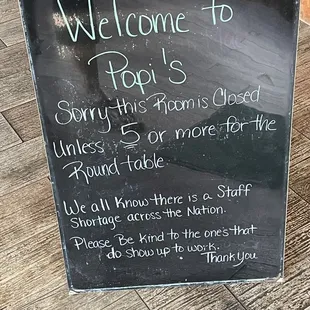 Welcome to
Papi's
Sorry this Room is Closed
Unless 5 or more for the
Round table
We all Know there is a Staff
Shortage across the Nation.
Please Be kind to the one's that
do show up to work.
Thank You